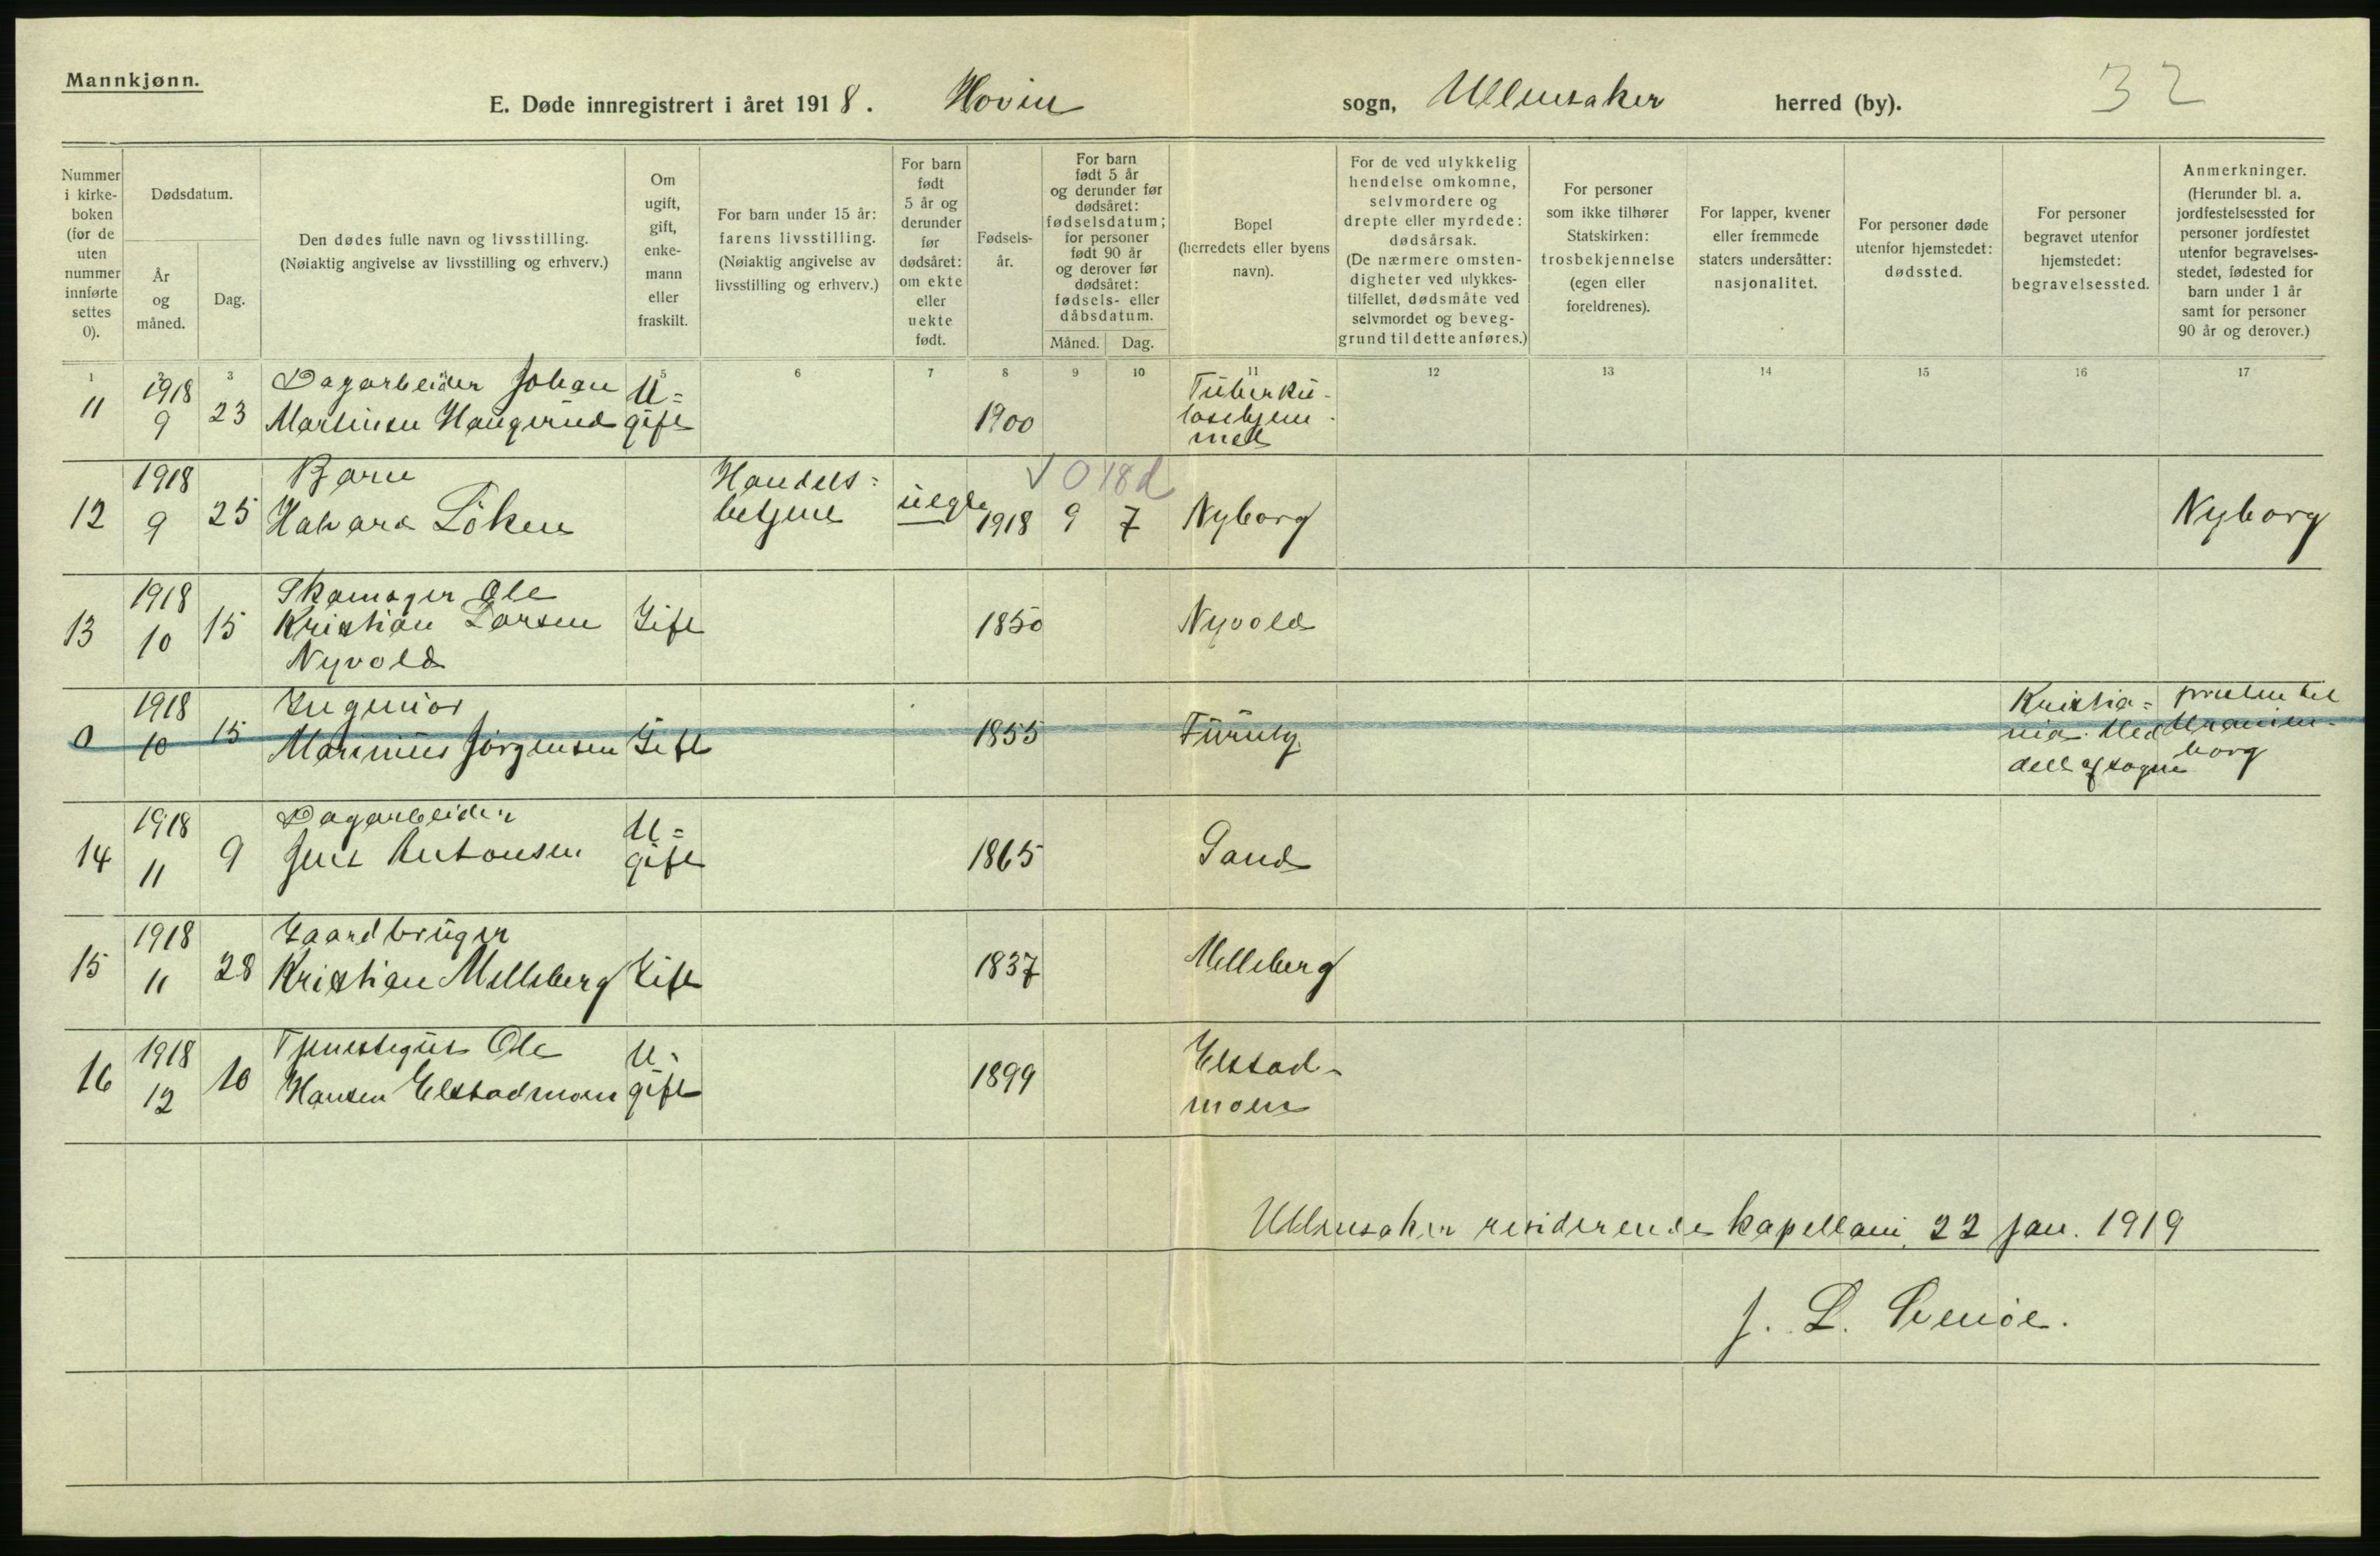 Mannkjønn.
E. Døde innregistrert i året 1918. Hovin sogn, Ullensaker herred (by). 32
Nummer
i kirke-
boken
(for de
uten
nummer
innførte
settes
0).
Dødsdatum.
År
og
måned.
Dag.
Den dødes fulle navn og livsstilling.
(Nøiaktig angivelse av livsstilling og erhverv.)
Om
ugift,
gift,
enke-
mann
eller
fraskilt.
For barn under 15 år:
farens livsstilling.
(Nøiaktig angivelse av
livsstilling og erhverv.)
For barn
født
5 år og
derunder
før
dødsåret:
om ekte
eller
uekte
født.
Fødsels-
år.
For barn
født 5 år
og derunder før
dødsåret:
fødselsdatum;
for personer
født 90 år
og derover før
dødsåret:
fødsels- eller
dåbsdatum.
Måned. Dag.
Bopel
(herredets eller byens
navn).
For de ved ulykkelig
hendelse omkomne,
selvmordere og
drepte eller myrdede:
dødsårsak.
(De nærmere omsten-
digheter ved ulykkes-
tilfellet, dødsmåte ved
selvmordet og beveg-
grund til dette anføres.)
For personer
som ikke tilhører
Statskirken:
trosbekjennelse
(egen eller
foreldrenes).
For lapper, kvener
eller fremmede
staters undersåtter:
nasjonalitet.
For personer døde
utenfor hjemstedet:
dødssted.
For personer
begravet utenfor
hjemstedet:
begravelsessted.
Anmerkninger.
(Herunder bl. a.
jordfestelsessted for
personer jordfestet
utenfor begravelses-
stedet, fødested for
barn under 1 år
samt for personer
90 år og derover.)
1 2 3 5 6 7 8 9 10 11 12 13 14 15 16 17
11
1918
9
23
Dagarbeider Johan
Martinsen Haugerud
U=
gift
1900
Tuberku-
losehjem-
met
12
1918
9
25
Barn
Halvard Löken
Handels=
betjent
uegte
√ 0 18d
1918 9 7
Nyborg
Nyborg
13
1918
10
15
Skomager Ole
Kristian Larsen
Nyvold
Gift
1850
Nyvold
0
1918
10
15
Ingeniör
Marinius Jörgensen
Gift
1855
Furuly
Kristia=
nia. Med
del af sogne
presten til
Uranien-
borg
14
1918
11
9
Dagarbeider
Jens Antonsen
U=
gift
1865
Sand
15
1918
11
28
Gaardbruger
Kristian Melleberg
Gift
1837
Melleberg
16
1918
12
10
Tjenestegut Ole
Hansen Elstadmoen
U-
gift
1899
Elstad-
moen
Ullensaker residerende kapellani, 22 jan. 1919